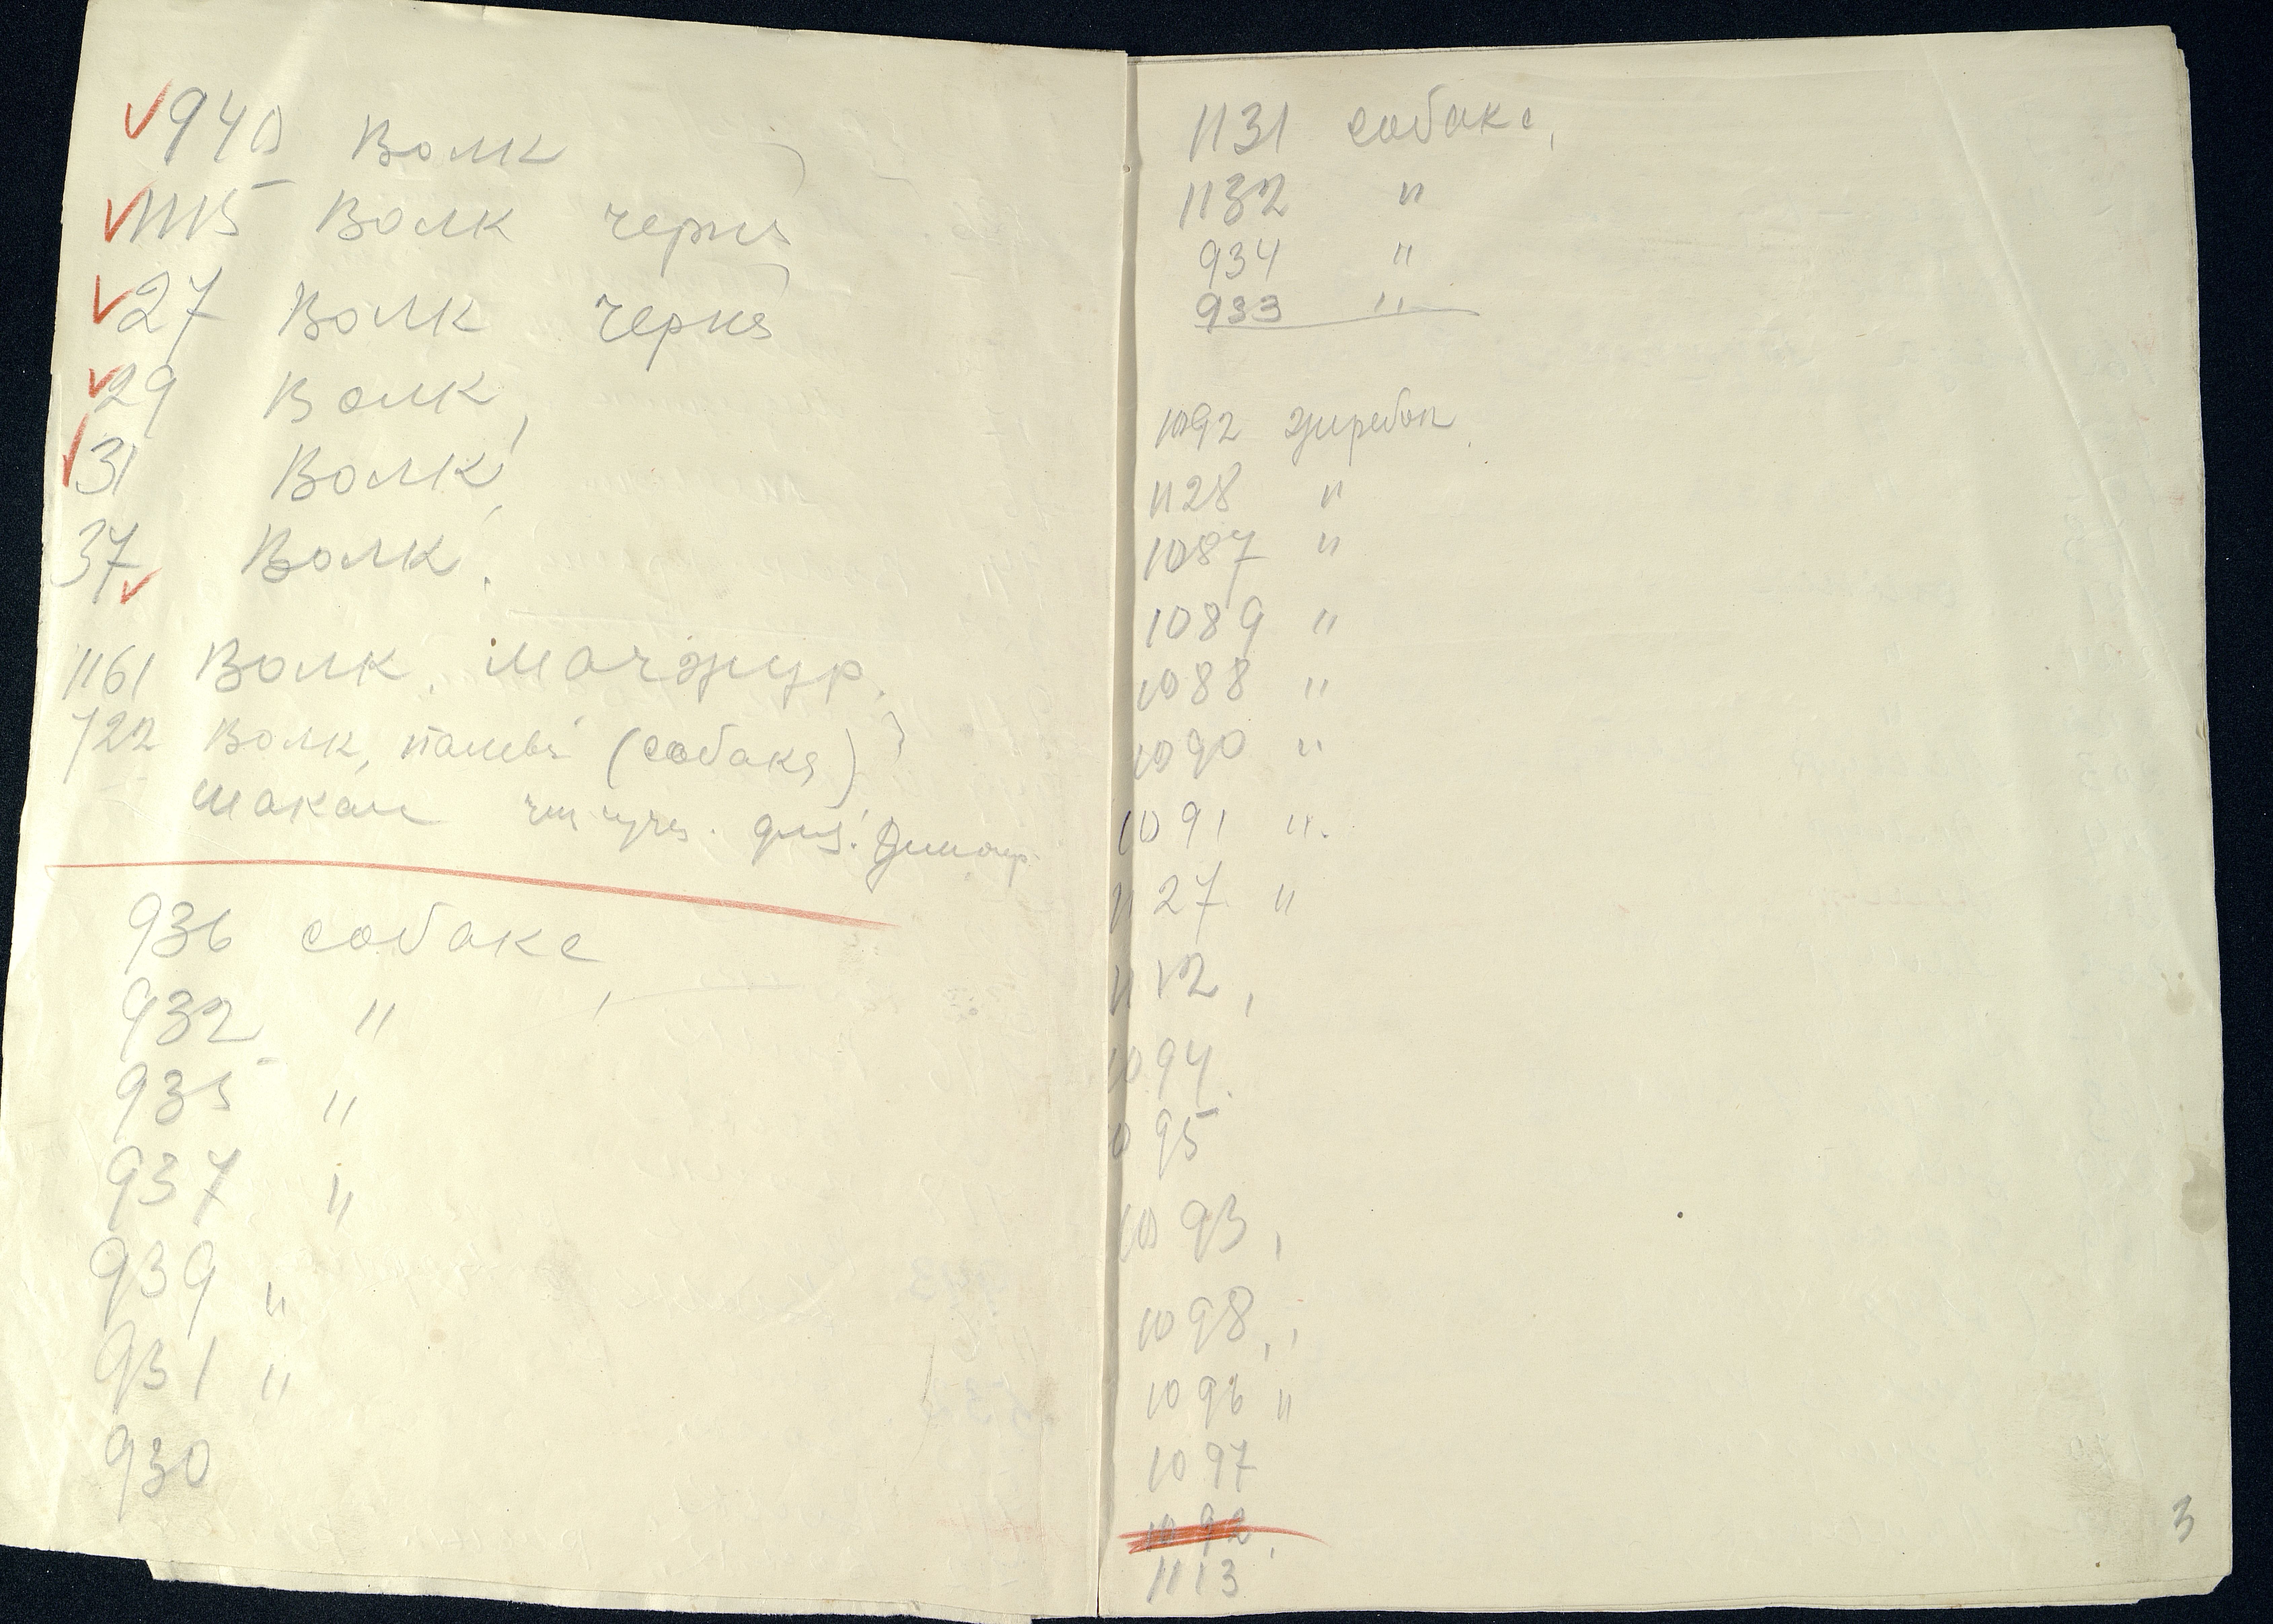 940 Волк
1115 Волк черня
27 Волк черня
29 Волк,
31 Волк,
37 Волк.
1161 Волк. Манджур.
722 Волк, (собака)
Шакал
936 собаке,
932 "
935 "
937 "
939 "
931 "
930
1131 собаке,
1132 "
934 "
933 "
1092 жиребок
1128 "
1087 "
1089 "
1088 "
1090 "
1091 ".
1127 "
1112,
1094.
1095
1093,
1098,,
1096 "
1097
1092,
1113
3